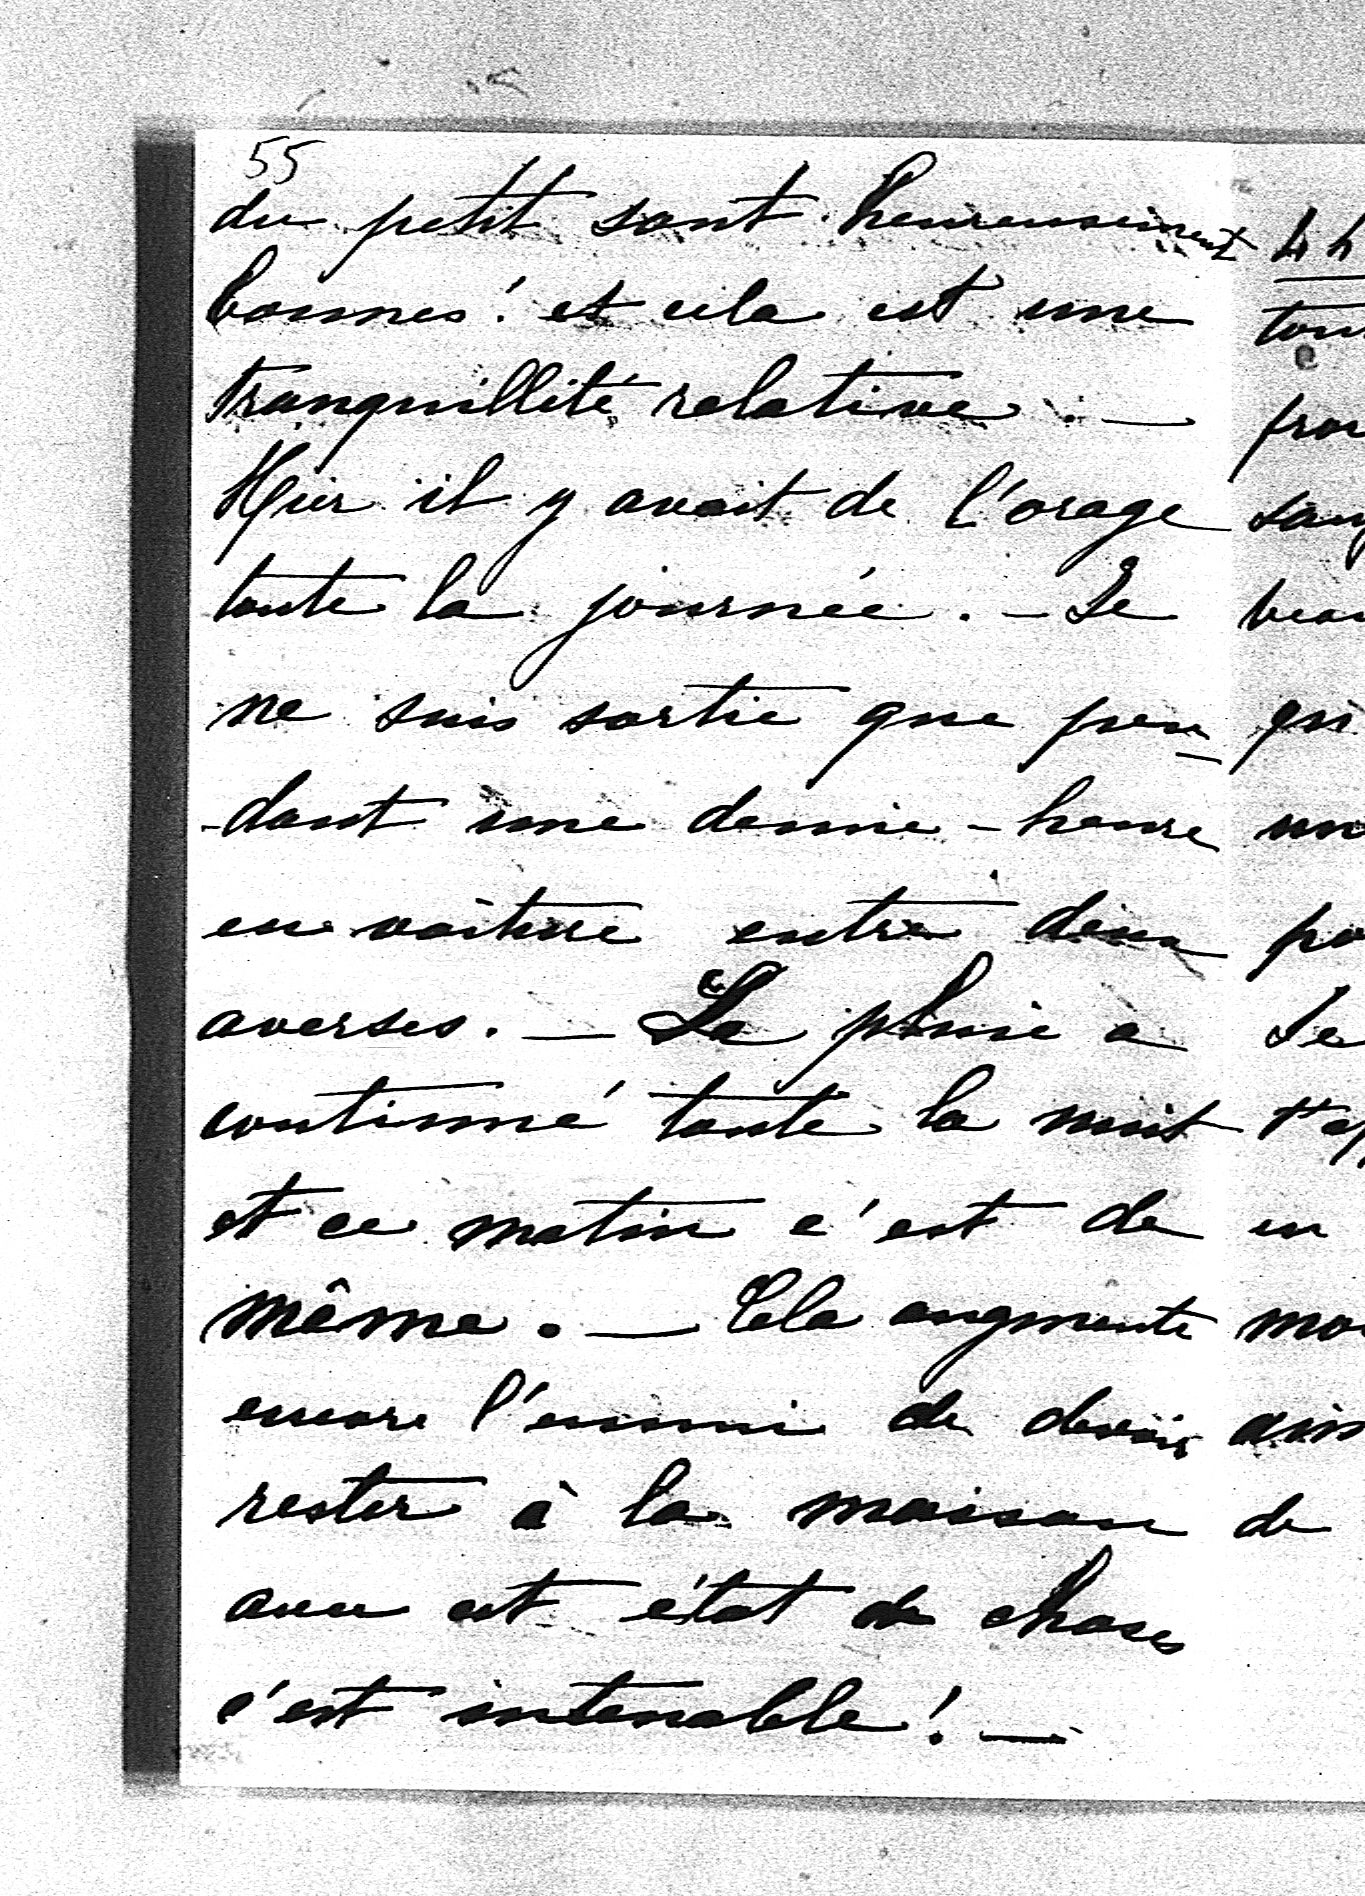 55
du petit sont heureusement
bonnes! et cela est une
tranquillité relative. —
Hier il y avait de l'orage
toute la journée. — Je
ne suis sortie que pen
-dant une demie-heure
en voiture entre deux
averses. — La pluie a
continué toute la nuit
et ce matin c'est de
même. — Cela augmente
encore l'ennui de devoir
rester à la maison
avec cet état de choses
c'est intenable! —